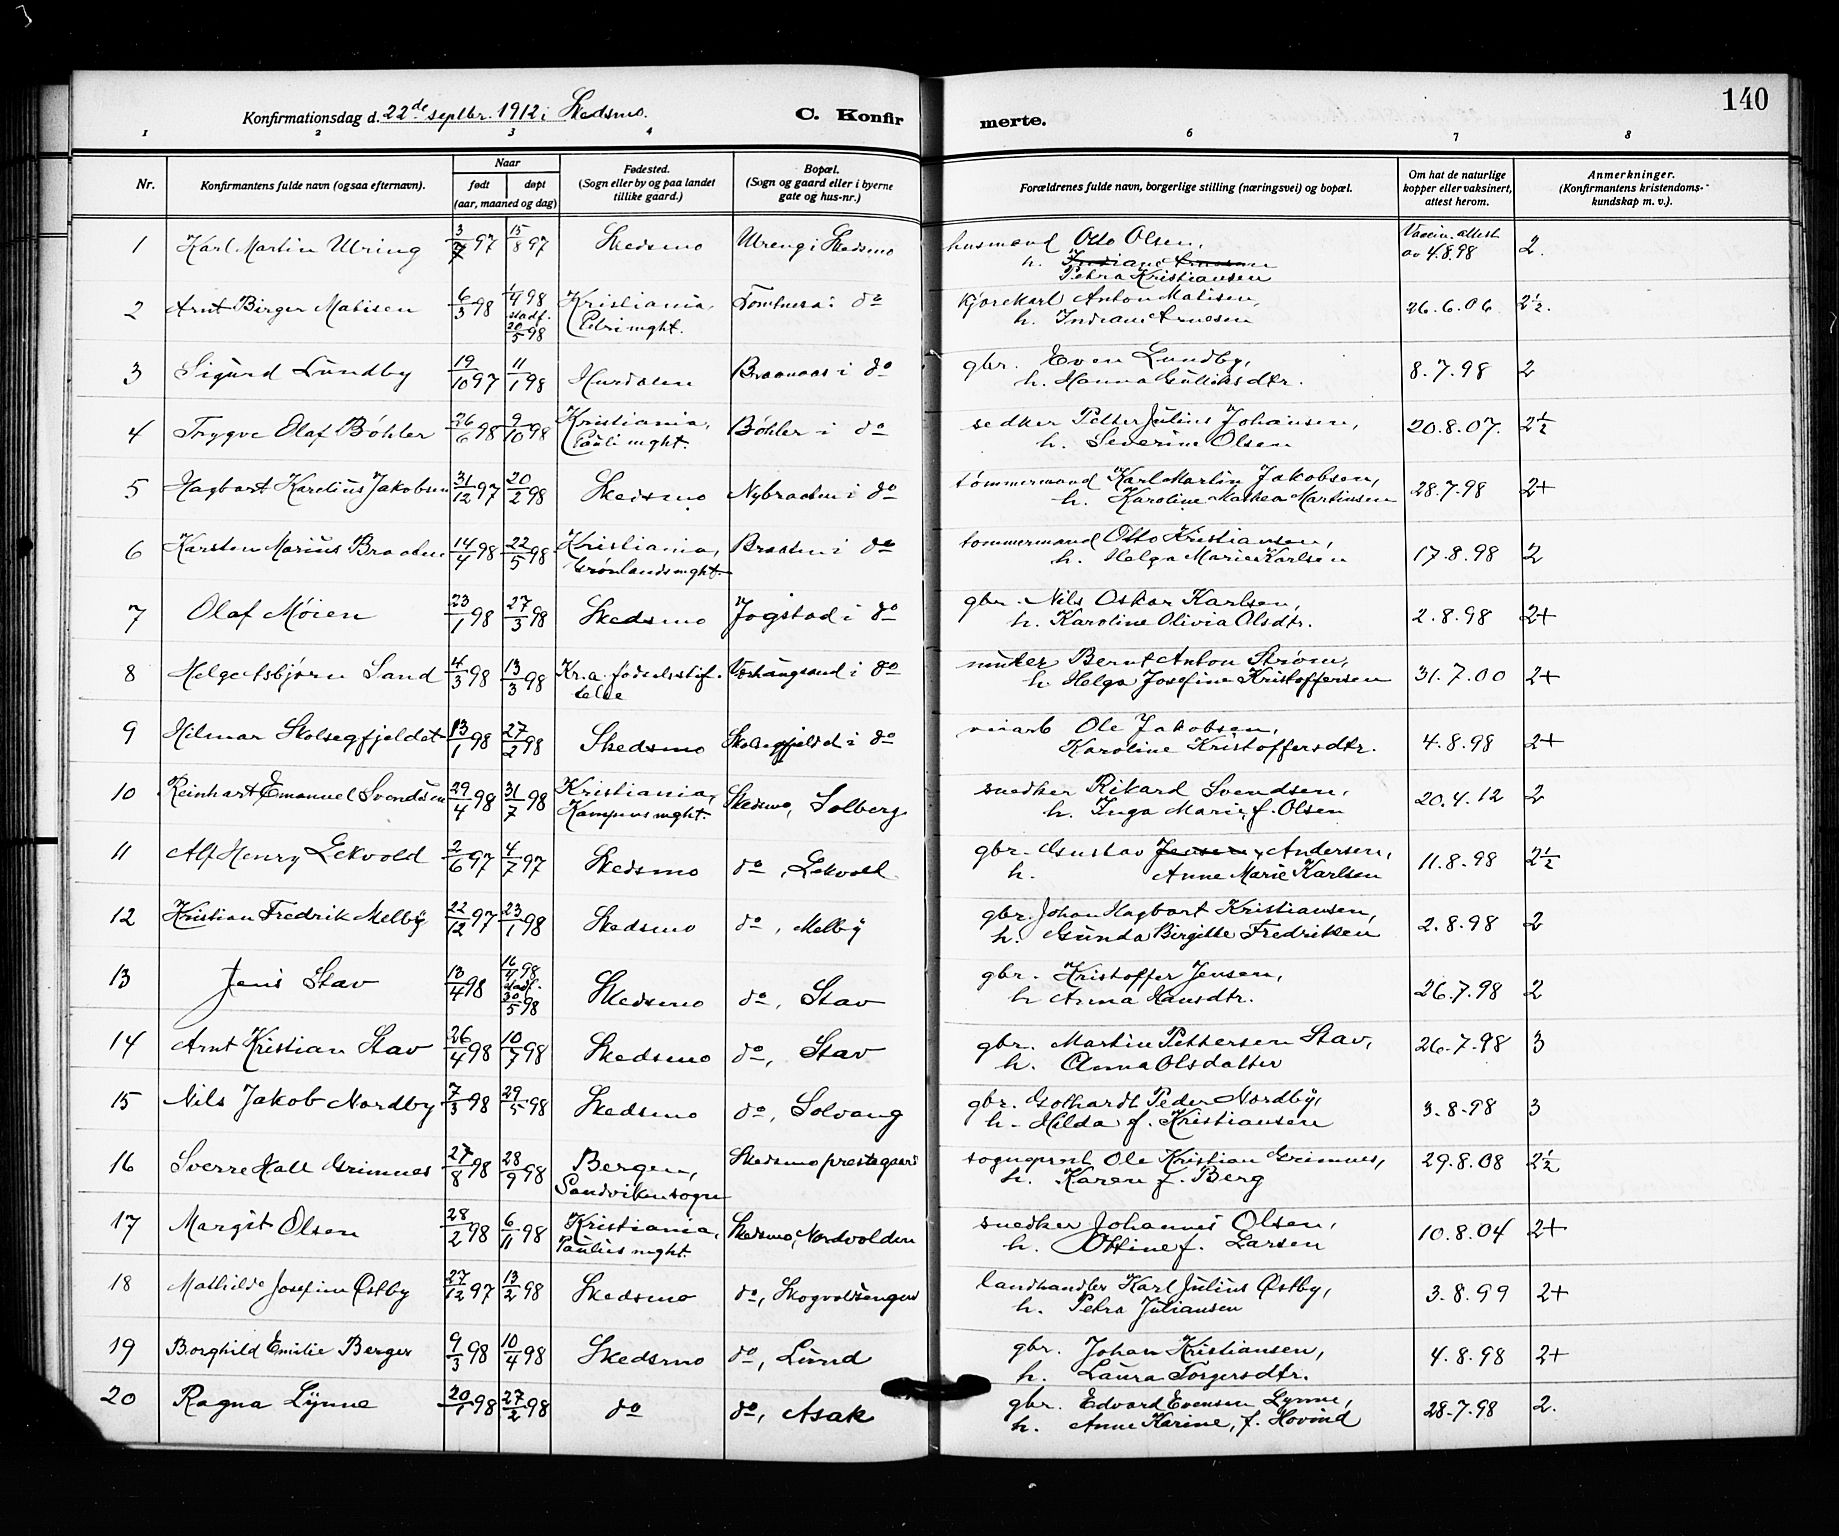 140
Konfirmationsdag d. 22de septbr. 1912 i Skedsmo. C. Konfirmerte.
1 2 3 4 6 7 8
Nr. Konfirmantens fulde navn (ogsaa efternavn). Naar født døpt (aar, maaned og dag) Fødested. (Sogn eller by og paa landet tillike gaard.) Bopæl. (Sogn og gaard eller i byerne gate og hus-nr.) Forældrenes fulde navn, borgerlige stilling (næringsvei) og bopæl. Om hat de naturlige kopper eller vaksinert, attest herom. Anmerkninger. (Konfirmantens kristendomskundskap m. v.).
1 Karl Martin Ulring 3/7 97 15/8 97 Skedsmo Ulreng i Skedsmo husmand Otto Olsen, h. Petra Kristiansen Vaccin. attest av 4.8.98 2.
2 Arnt Birger Matisen 6/3 98 1/4 98 stadf. 20/5 98 Kristiania, Petri mght. i do Kjørekarl Anton Matisen, h. Indiane Arnesen 26.6.06 2½.
3 Sigurd Lundby 19/10 97 11/1 98 Hurdalen Braanaas i do gbr. Even Lundby, h. Hanna Gulliksdtr. 8.7.98 2
4 Trygve Olaf Bøhler 26/6 98 9/10 98 Kristiania, Pauli mght. Bøhler i do sedker Petter Julius Johansen, h. Severine Olsen 20.8.07. 2½
5 Hagbart Karelius Jakobsen 31/12 97 20/2 98 Skedsmo Nybraaten i do tømmermand Karl Martin Jakobsen, h. Karoline Mathea Martinsen 28.7.98 2+
6 Karsten Marius Braaten 14/4 98 22/5 98 Kristiania, Grønlands mght. Braaten i do tømmermand Otto Kristiansen, h. Helga Marie Karlsen 17.8.98 2
7 Olaf Moien 23/1 98 27/3 98 Skedsmo Jogstad i do gbr. Nils Oskar Karlsen, h. Karoline Olivia Olsdtr. 2.8.98 2+
8 Helge Asbjørn Sand 4/3 98 13/3 98 Kr.a. fødselsstiftelse i do Bernt Anton Strøm, h. Helga Josefine Kristoffersen 31.7.00 2+
9 Hilmar Skolsegfjeldet 13/1 98 27/2 98 Skedsmo Skolsegfjeld i do Ole Jakobsen, Karoline Kristoffersdtr. 4.8.98 2+
10 Reinhart Emanuel Svendsen 29/4 98 31/7 98 Kristiania, Kampens mght. Skedsmo, Solberg snedker Rikard Svendsen, h. Inga Marie f. Olsen 20.4.12 2
11 Alf Henry Lekvold 2/6 97 4/7 97 Skedsmo do, Lekvoll gbr. Gustav Jensen, Andersen, h. Anne Marie Karlsen 11.8.98 2½
12 Kristian Fredrik Melby 22/12 97 23/1 98 Skedsmo do, Melby gbr. Johan Hagbart Kristiansen, h. Gunda Birgitte Fredriksen 2.8.98 2
13 Jens Stav 13/4 98 16/4 98 stadf. 30/5 98 Skedsmo do, Stav gbr. Kristoffer Jensen, h Anna Hansdtr. 26.7.98 2
14 Arnt Kristian Stav 26/4 98 10/7 98 Skedsmo do, Stav gbr. Martin Pettersen Stav, h. Anna Olsdatter 26.7.98 3
15 Nils Jakob Nordby 7/3 98 29/5 98 Skedsmo do, Solvang gbr. Gothardt Peder Nordby, h. Hilda f. Kristiansen 3.8.98 3
16 Sverre Hall Grimnes 27/8 98 28/9 98 Bergen, Sandviken sogn Skedsmo prestegaard sogneprest Ole Kristian Grimnes, h. Karen f. Berg 29.8.08 2½
17 Margit Olsen 28/2 98 6/11 98 Kristiania, Paulus mght. Skedsmo, Nordvolden snedker Johannes Olsen, h. Ottine f. Larsen 10.8.04 2+
18 Mathilde Josefine Østby 27/12 97 13/2 98 Skedsmo do, Skogvoldsengen landhandler Karl Julius Østby, h. Petra Juliansen 3.8.99 2+
19 Borghild Emilie Berger 9/3 98 10/4 98 Skedsmo do, Lund gbr. Johan Kristiansen, h. Laura Torgersdtr. 4.8.98 2+
20 Ragna Lynne 20/1 98 27/2 98 do do, Asak gbr. Edvard Evensen Lynne, h. Anne Karine, f. Hovind 28.7.98 2.